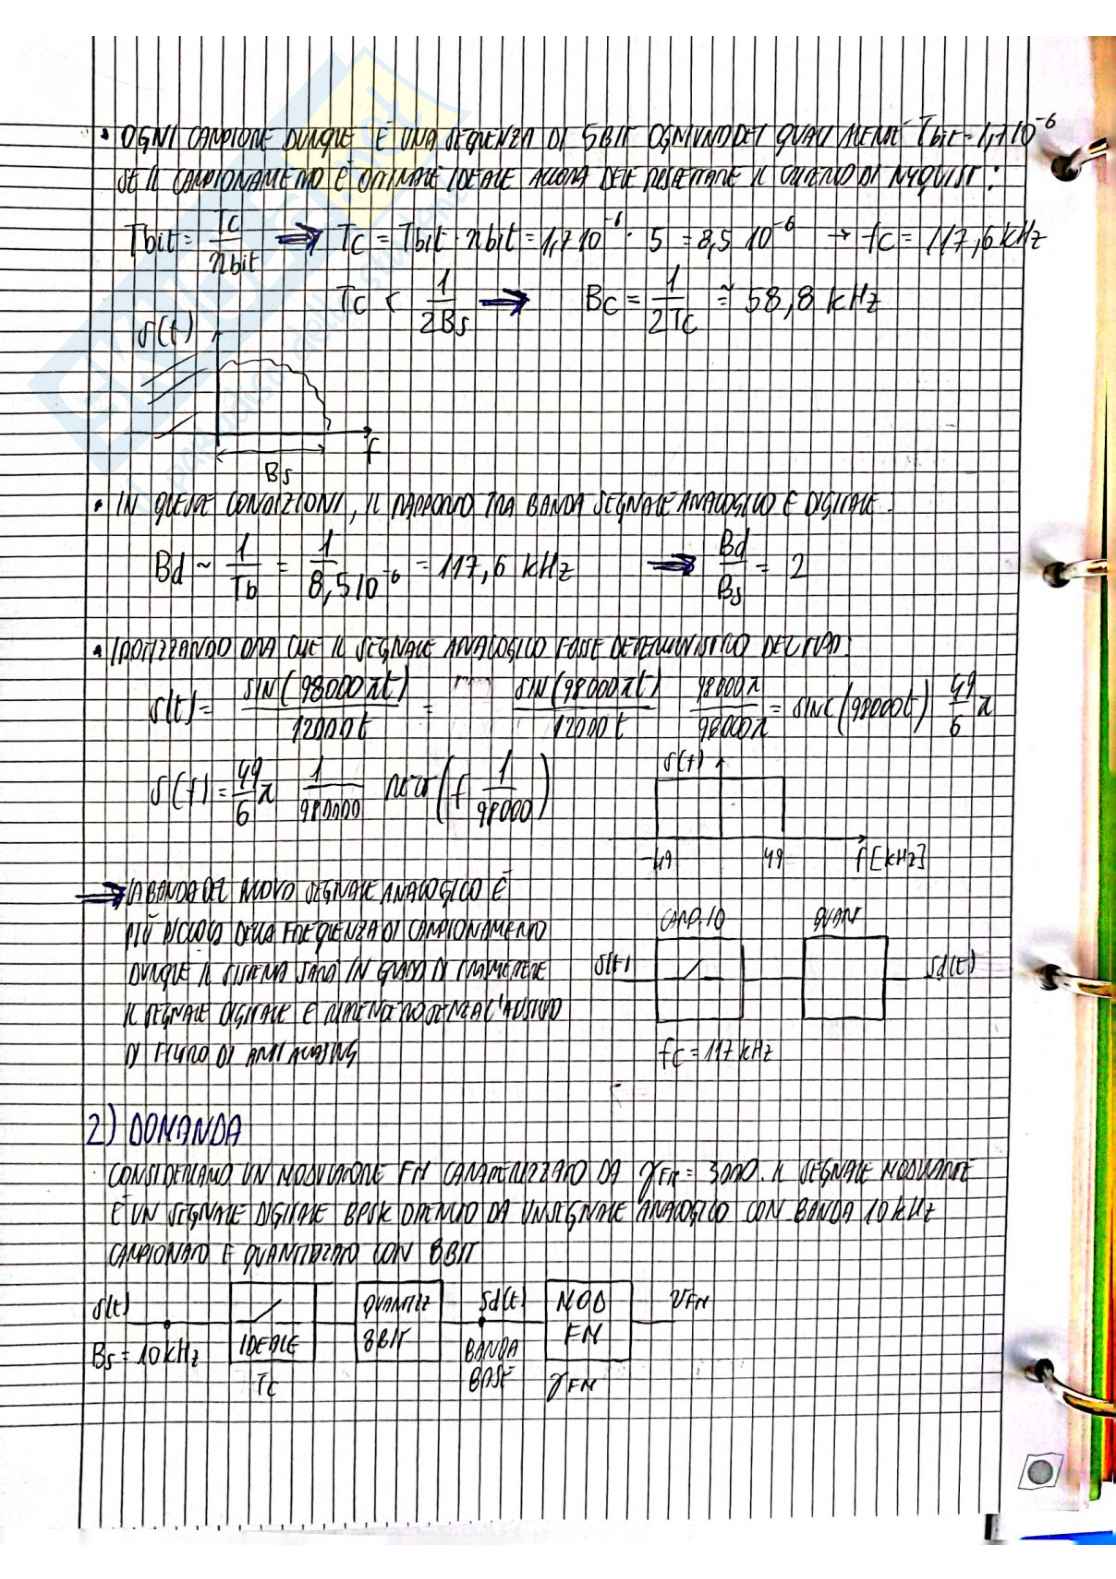 • OGNI CAMPIONE DUNQUE È UNA SEQUENZA DI 5 BIT OGNIUNO DEI QUALI Tbit = 1,7 10⁻⁶
SE IL CAMPIONAMENTO È IDEALE ALLORA DEVE RISPETTARE IL CRITERIO DI NYQUIST:
Tbit = Tc / nbit ⇒ Tc = Tbit · nbit = 1,7 10⁻⁶ · 5 = 8,5 10⁻⁶ → fc = 117,6 kHz
Tc < 1 / 2Bs ⇒ Bc = 1 / 2Tc ≅ 58,8 kHz
S(f)
f
Bs
• IN QUESTE CONDIZIONI, IL RAPPORTO TRA BANDA SEGNALE ANALOGICO E DIGITALE
Bd ~ 1 / Tb = 1 / 8,5 10⁻⁶ = 117,6 kHz ⇒ Bd / Bs = 2
• IPOTIZZANDO ORA CHE IL SEGNALE ANALOGICO FOSSE DETERMINISTICO DEL TIPO:
s(t) = SIN(98000πt) / 12000t = SIN(98000πt) / 12000t 98000π / 98000π = SINC(98000t) 49/6 π
S(f) = 49/6 π 1 / 98000 rect(f 1 / 98000)
S(f)
-49 49 f [kHz]
⇒ LA BANDA DEL NUOVO SEGNALE ANALOGICO È
PIÙ PICCOLA DELLA FREQUENZA DI CAMPIONAMENTO
DUNQUE IL SISTEMA SARÀ IN GRADO DI
IL SEGNALE DIGITALE E SENZA L'AUSILIO
DI FILTRO DI ANTI ALIASING
CAMP.TO QUANT
S(t) Sd(t)
fc = 117 kHz
2) DOMANDA
CONSIDERIAMO UN MODULATORE FM CARATTERIZZATO DA γFM = 3000. IL SEGNALE MODULANTE
È UN SEGNALE DIGITALE BPSK OTTENUTO DA UN SEGNALE ANALOGICO CON BANDA 10 kHz
CAMPIONATO E QUANTIZZATO CON 8 BIT
S(t) QUANTIZ Sd(t) MOD VFM
Bs = 10 kHz IDEALE 8 BIT BANDA FM
Tc BASE γFM